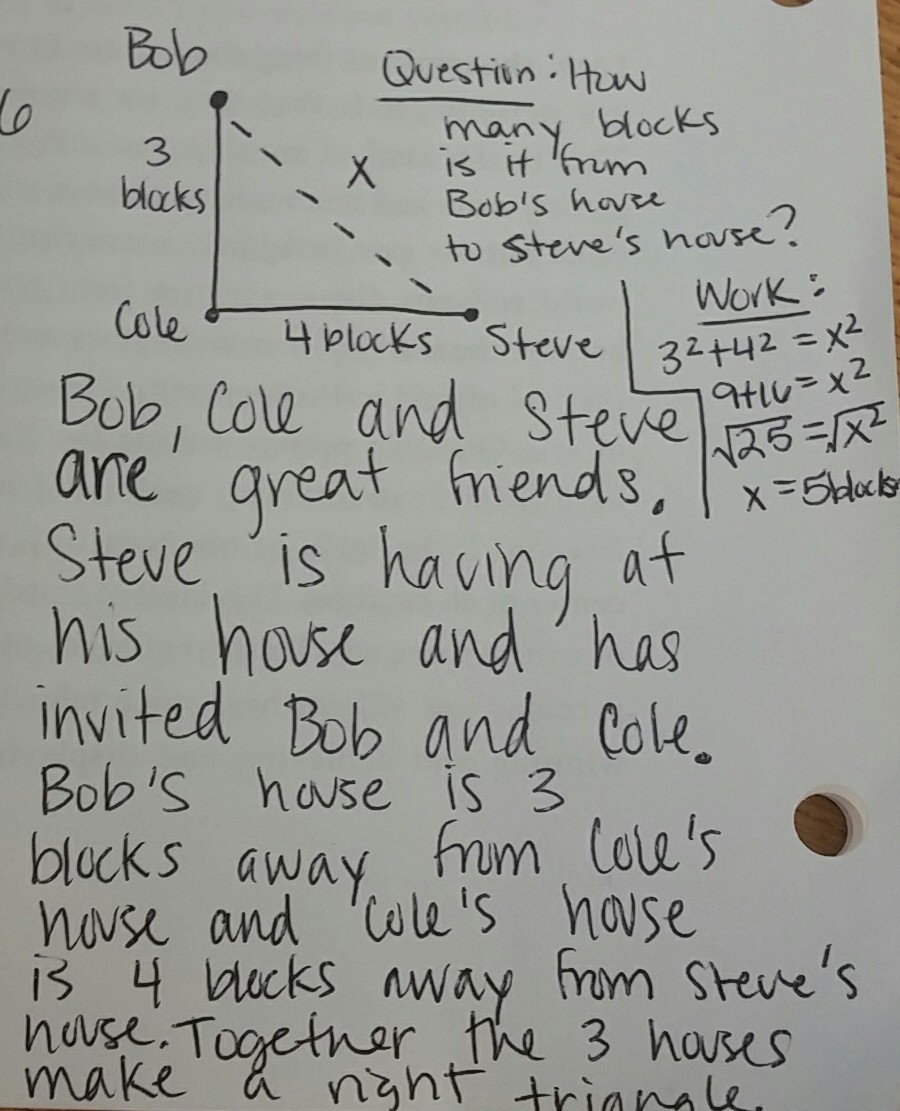 6
Bob
3
blocks
x
Cole
4 blocks
Steve
Question: How
many blocks
is it from
Bob's house
to Steve's house?
Work:
3²+4² = x²
9+16 = x²
√25 = √x²
x = 5 blocks
Bob, Cole and Steve
are great friends.
Steve is having at
his house and has
invited Bob and Cole.
Bob's house is 3
blocks away from Cole's
house and Cole's house
is 4 blocks away from Steve's
house. Together the 3 houses
make a right triangle.